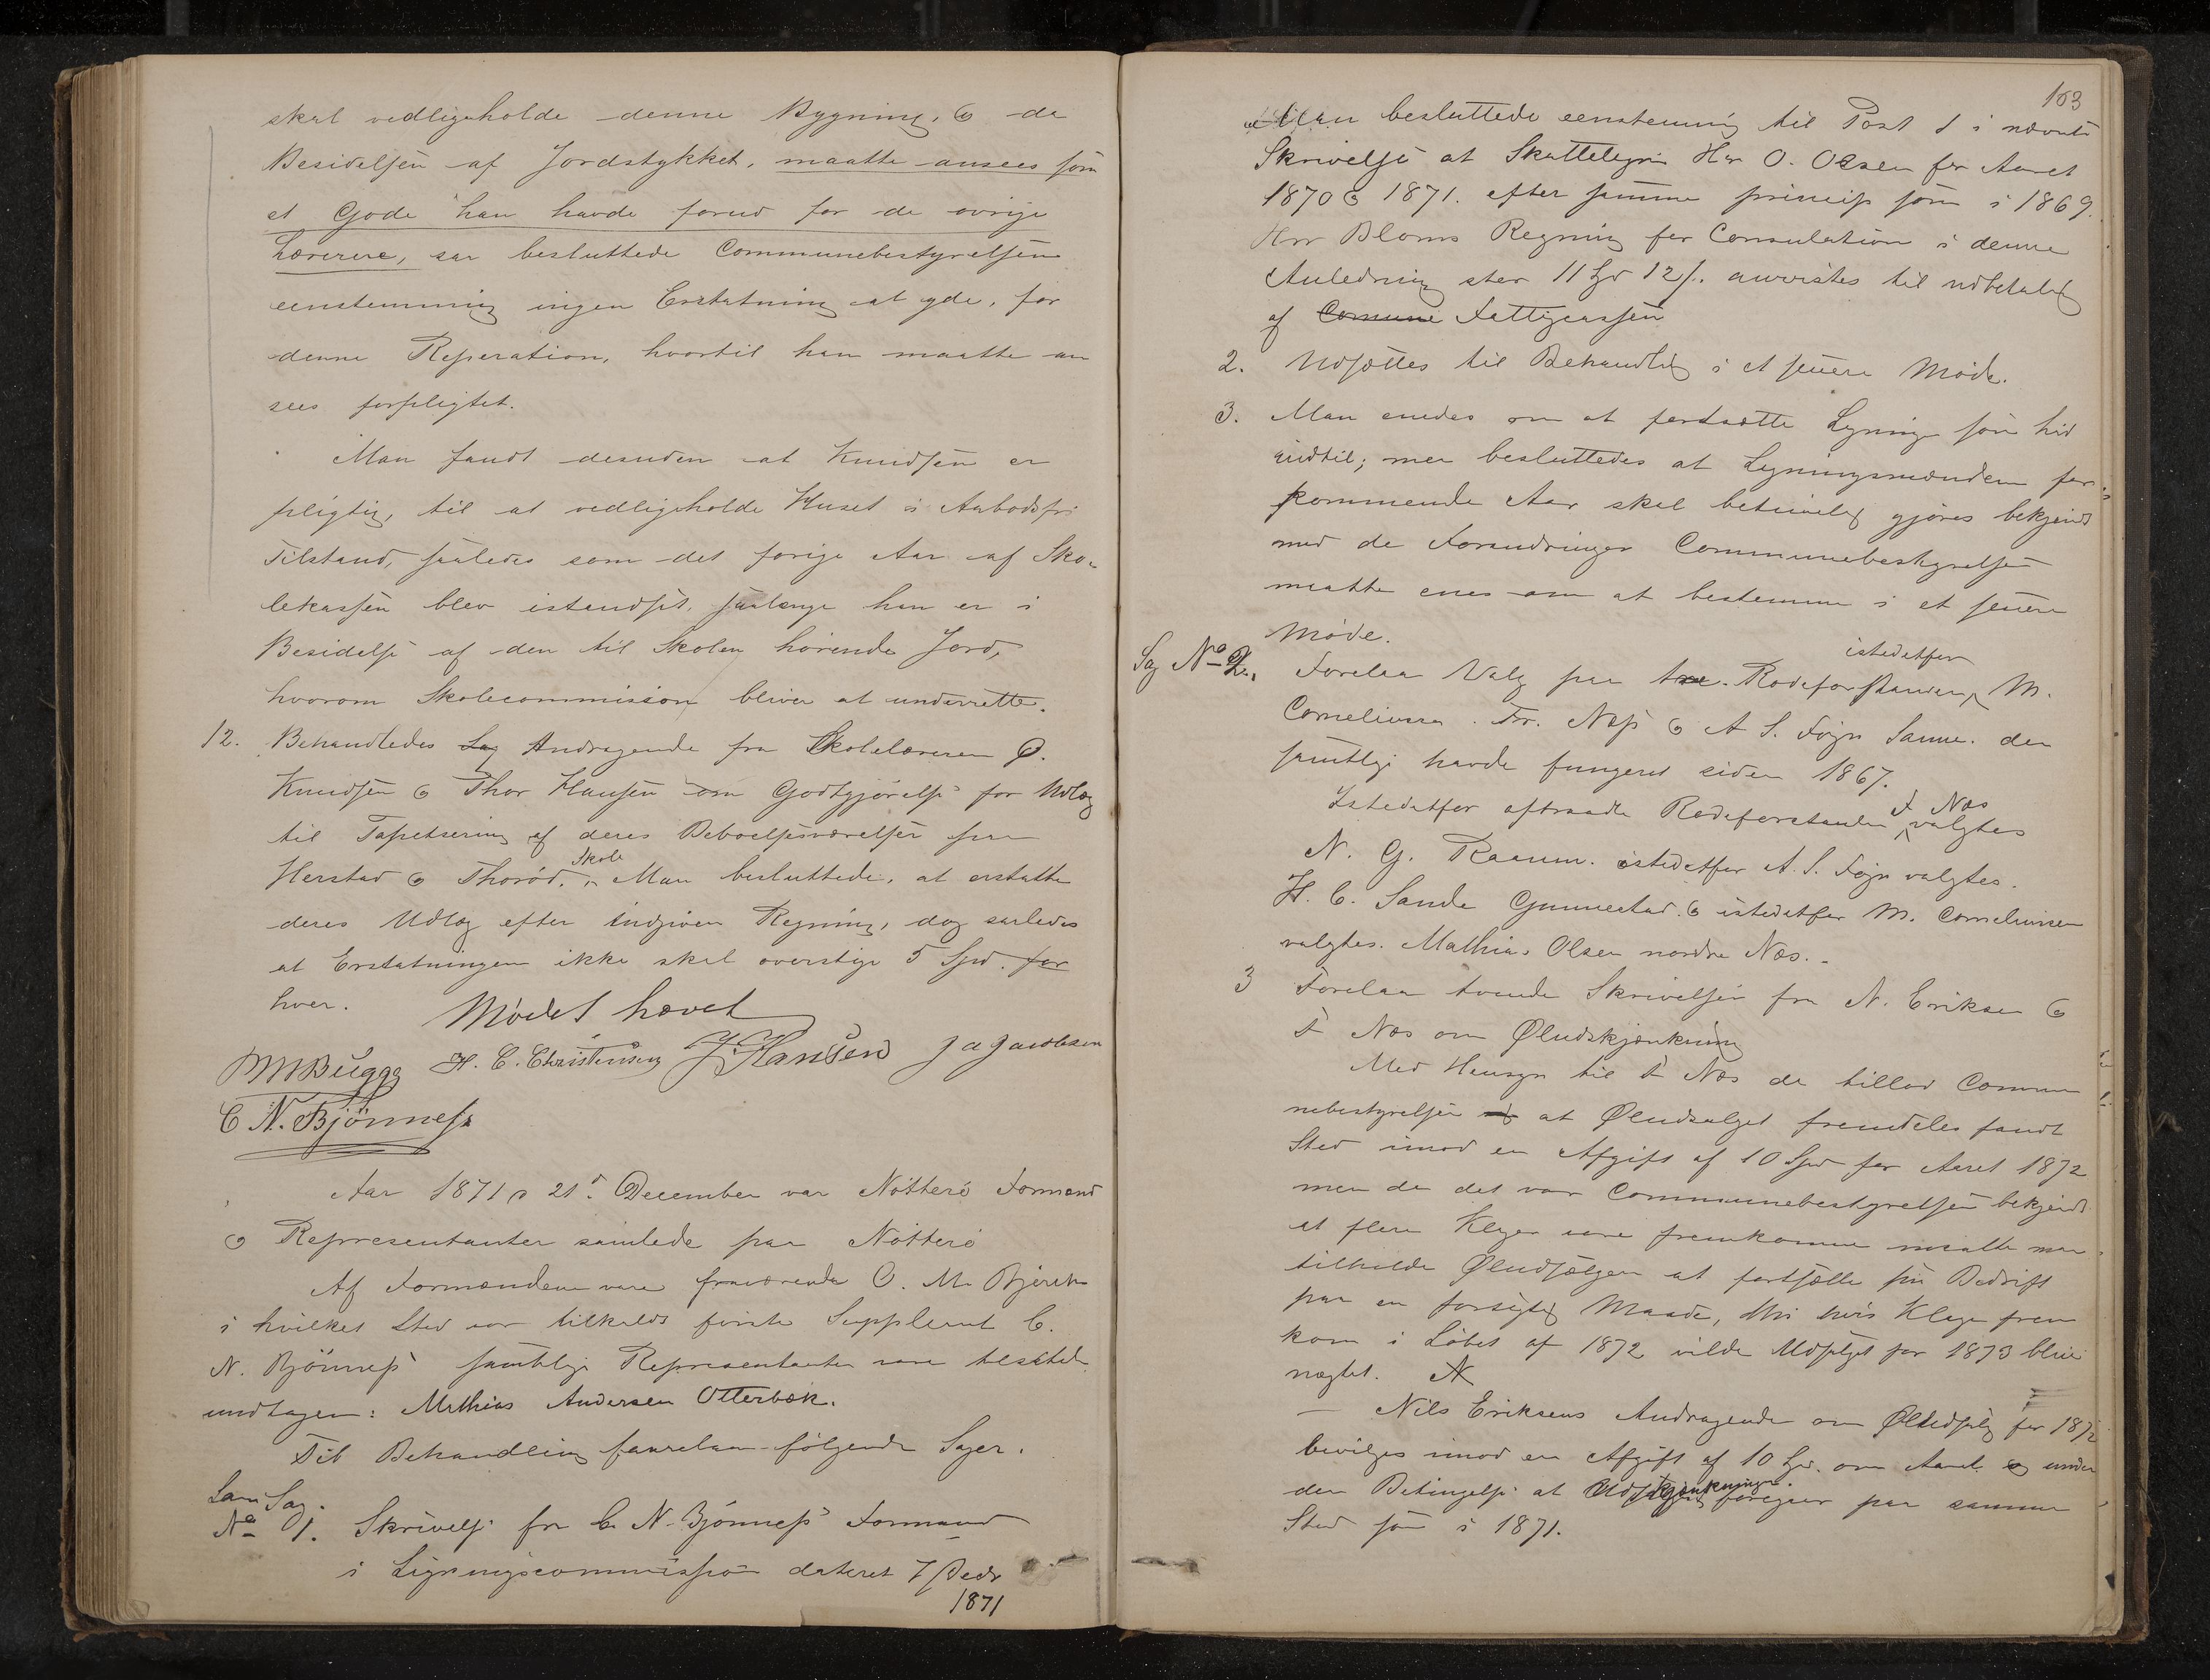 skal vedligeholde denne Bygning, & da
Besidelsen af Jordstykket, maatte ansees som
et Gode han havde forud for de øvrige
Lærerere, saa besluttede Communebestyrelsen
eenstemmig ingen Erstatning at yde, for
denne Reperation, hvortil han maatte an
sees forpligtet.
Man fandt desuden at Knudsen er
pligtig, til at vedligeholde Huset i Aabodsfri
Tilstand, saaledes som det forige Aar af Sko-
lekassen blev istandsat, saalænge han er i
Besidelse af den til Skolen hørende Jord,
hvorom Skolecommission bliver at underrette.
12. Behandledes Sag Andragende fra Skolelæreren O.
Knudsen & Thor Hansen om Godtgjørelse for Udlæg
til Tapetsering af deres Beboelsesværelser paa
Herstad & Thorød Skole. Man besluttede, at erstatte
deres Udlæg efter indgiven Regning, dog saaledes
at Erstatningen ikke skal overstige 5 Spd. for
hver. Mødet hævet
MMBugge H. C. Christensen J Hansen J A Jacobsen
C N. Bjönness
Aar 1871 d 21d December var Nøtterø Formænd
& Representanter samlede paa Nøtterø
Af Formændene vare fraværende O. M. Bjerck
i hvilket Sted var tilkaldt første Suppleant C.
N. Bjönness samtlige Representanter vare tilstede
undtagen: Mathias Andersen Otterbæk.
Til Behandling faarelaa følgende Sager.
Sag
No 1. Skrivelse fra C. N. Bjønness Formand
i Ligningscommission dateret 7 Decbr
1871
163
Man besluttede eenstemmig til Post 1 i nævnte
Skrivelse at Skattelegge Hr O. Olsen for Aaret
1870 & 1871. efter samme princip som i 1869.
Herr Bloms Regning for Consulation i denne
Anledning stor 11 Spd 12 s. anvistes til udbetaling
af Comune Fattigcassen
2. Udsættes til Behandling i et senere Møde.
3. Man enedes om at fortsætte Ligning som hid
indtil; men besluttedes at Ligningsmændene for
kommende Aar skal betimelig gjøres bekjendt
med de Forandringer Communebestyrelsen
maatte enes om at bestemme i et senere
Møde.
Sag No 2. Forelaa Valg paa tre Rodeforstander istedetfor M.
Corneliussen. Fr. Næs & A S. Føyn Sanne. der
samtlige havde fungeret siden 1867.
Istedetfor aftraadte Rodeforstander F Næs valgtes
N. G. Raanum. istedetfor A. S. Føyn valgtes.
H. C. Sande Gunnestad. & istedetfor M. Corneliussen
valgtes. Mathias Olsen nordre Næs.
3 Forelaa tvende Skrivelser fra N. Eriksen &
F Næs om Øludskjænkning
Med Hensyn til F Næs da tillod Commu
nebestyrelsen at Øludsalget fremdeles fandt
Sted imod en Afgift af 10 Spd for Aaret 1872
men da det var Communebestyrelsen bekjendt
at flere Klager vare fremkomne maatte man
tilholde Øludsælgeren at fortsætte sin Bedrift
paa en forsigtig Maade, thi hvis Klage frem
kom i Løbet af 1872 vilde Udsalget for 1873 blive
nægtet.
Nils Eriksens Andragende om Øludsalg for 1872
bevilges imod en Afgift af 10 Spd. om Aaret og under
den Betingelse at Udskjænkningen foregaar paa samme
Sted som i 1871.